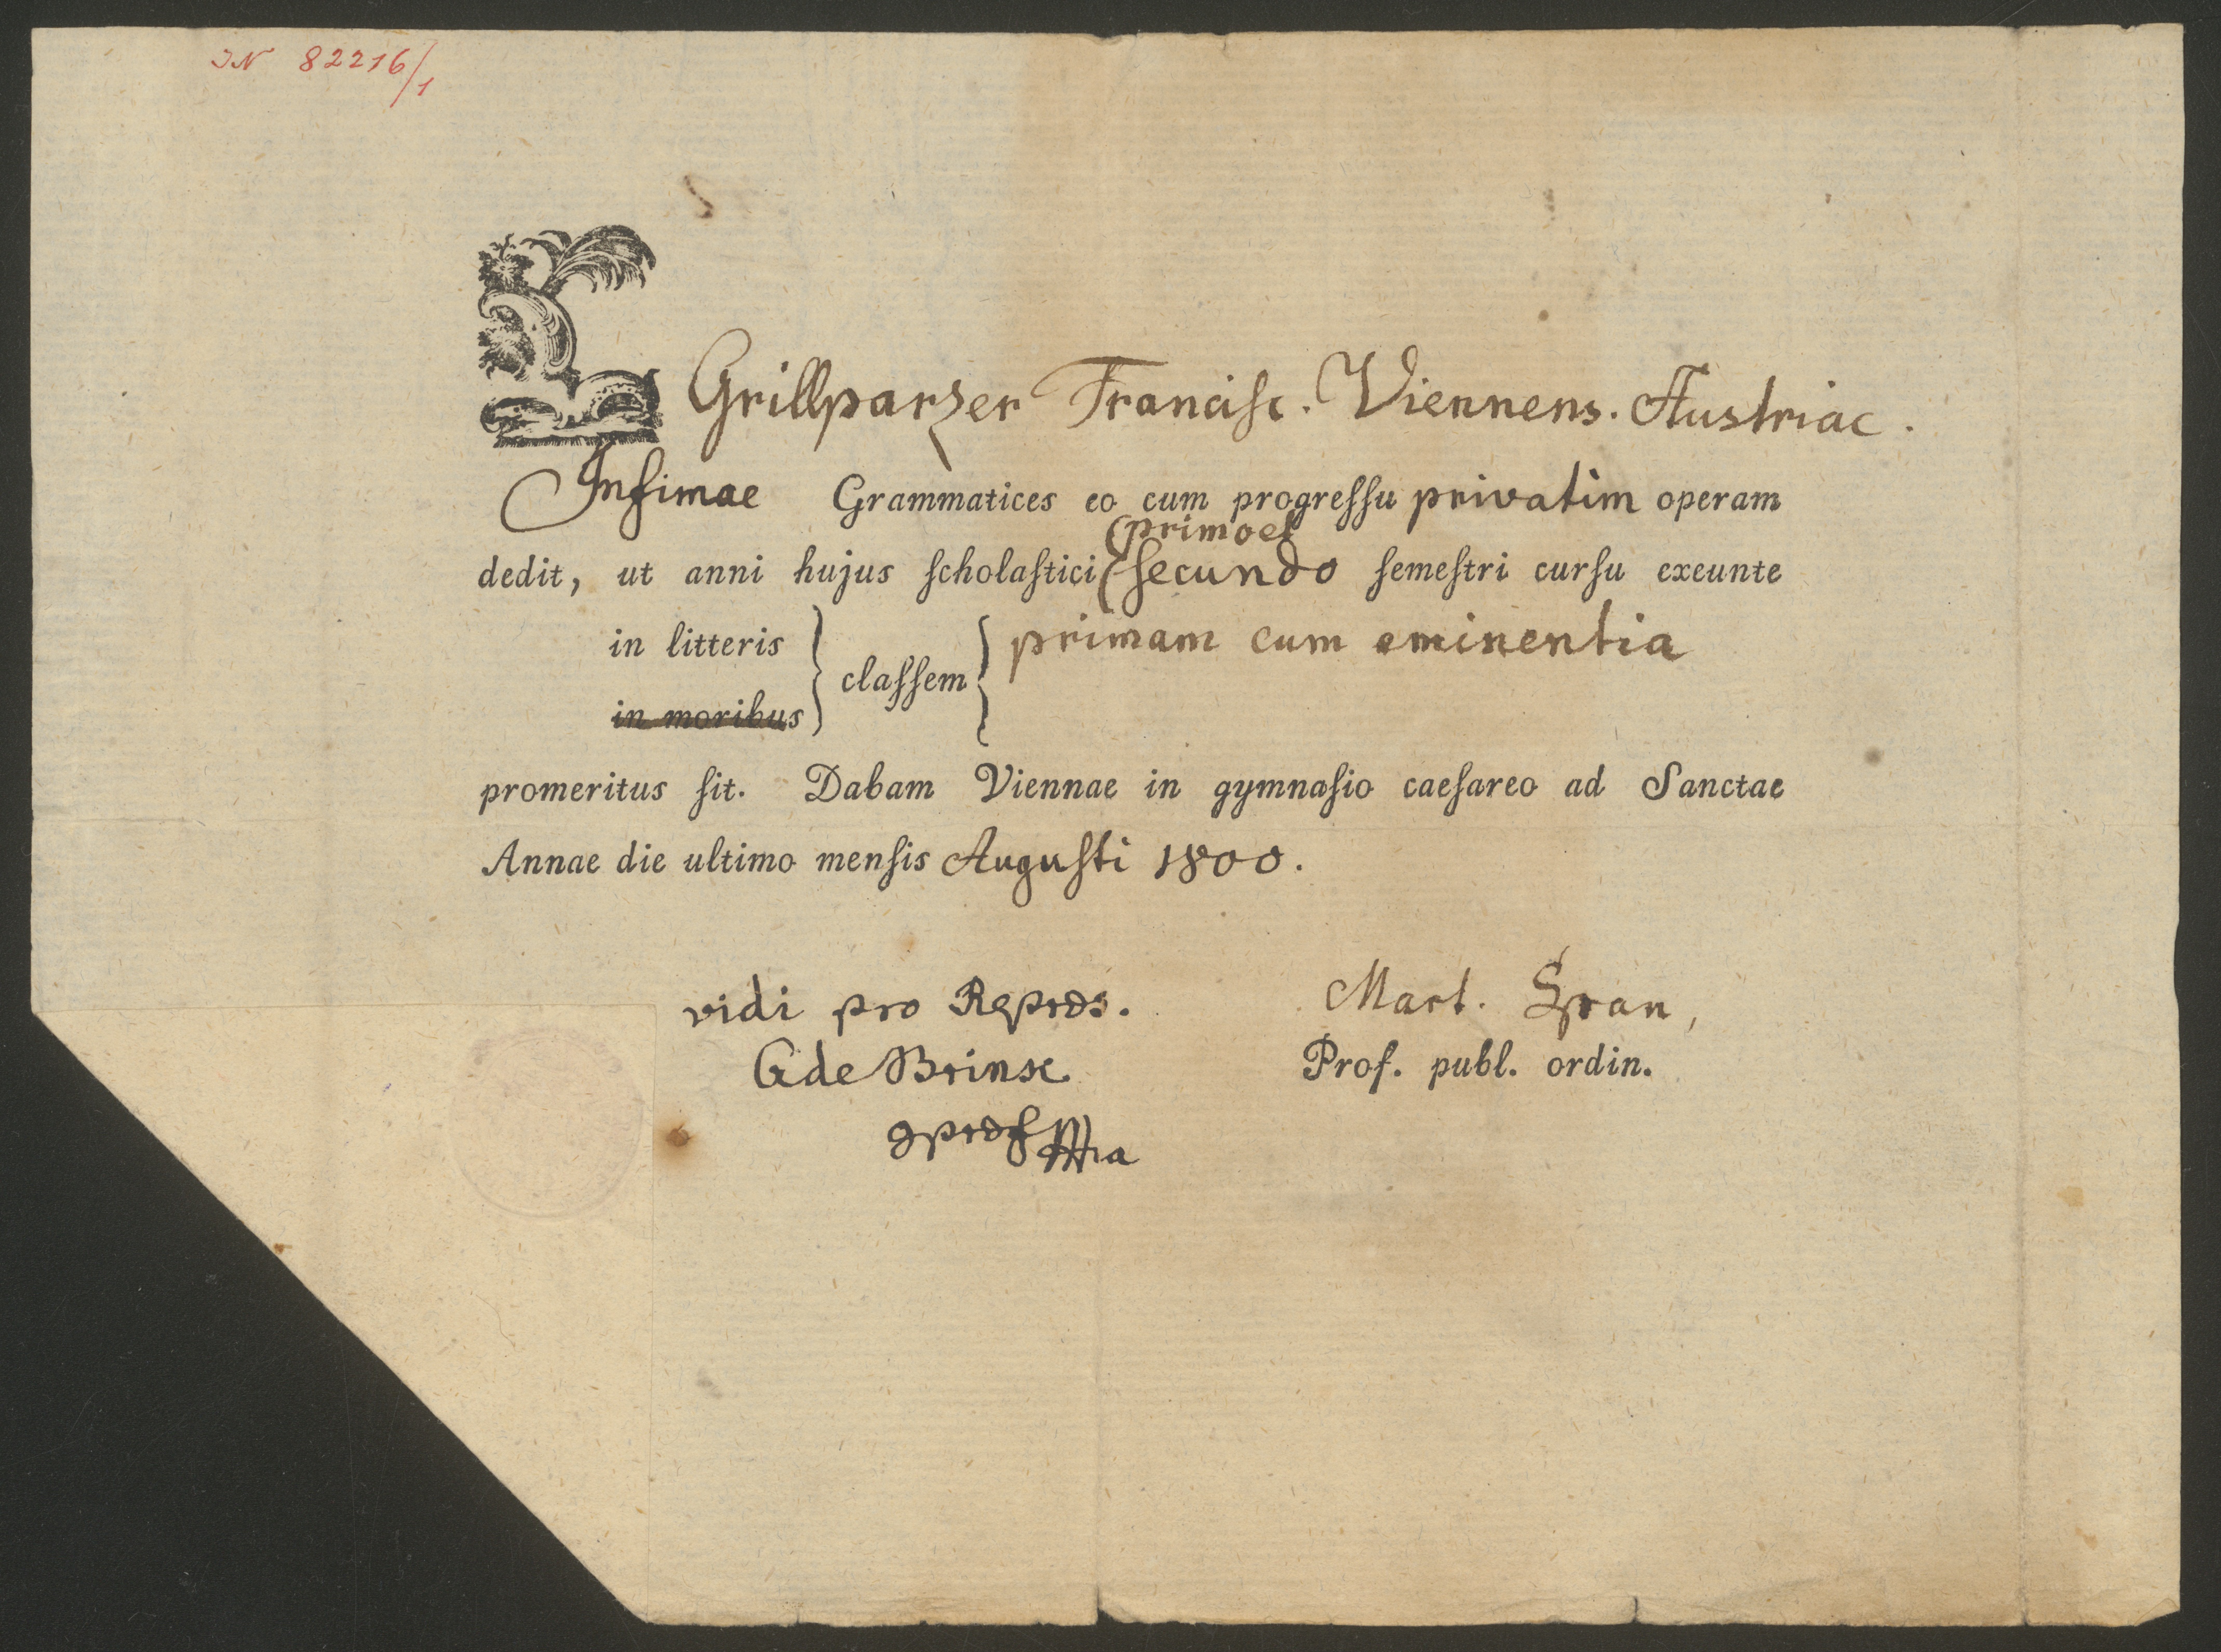 IN 82216/1
Grillparzer Francisc. Viennens. Austriac.
Infimae Grammatices eo cum progreſſu privatim operam
primo et
dedit, ut anni hujus ſcholaſtici ſecundo ſemeſtri curſu exeunte
in litteris } claſſem { primam cum eminentia
in moribus
promeritus ſit. Dabam Viennae in gymnaſio caeſareo ad Sanctae
Annae die ultimo menſis Auguſti 1800.
vidi pro Mart. Span,
Prof. publ. ordin.